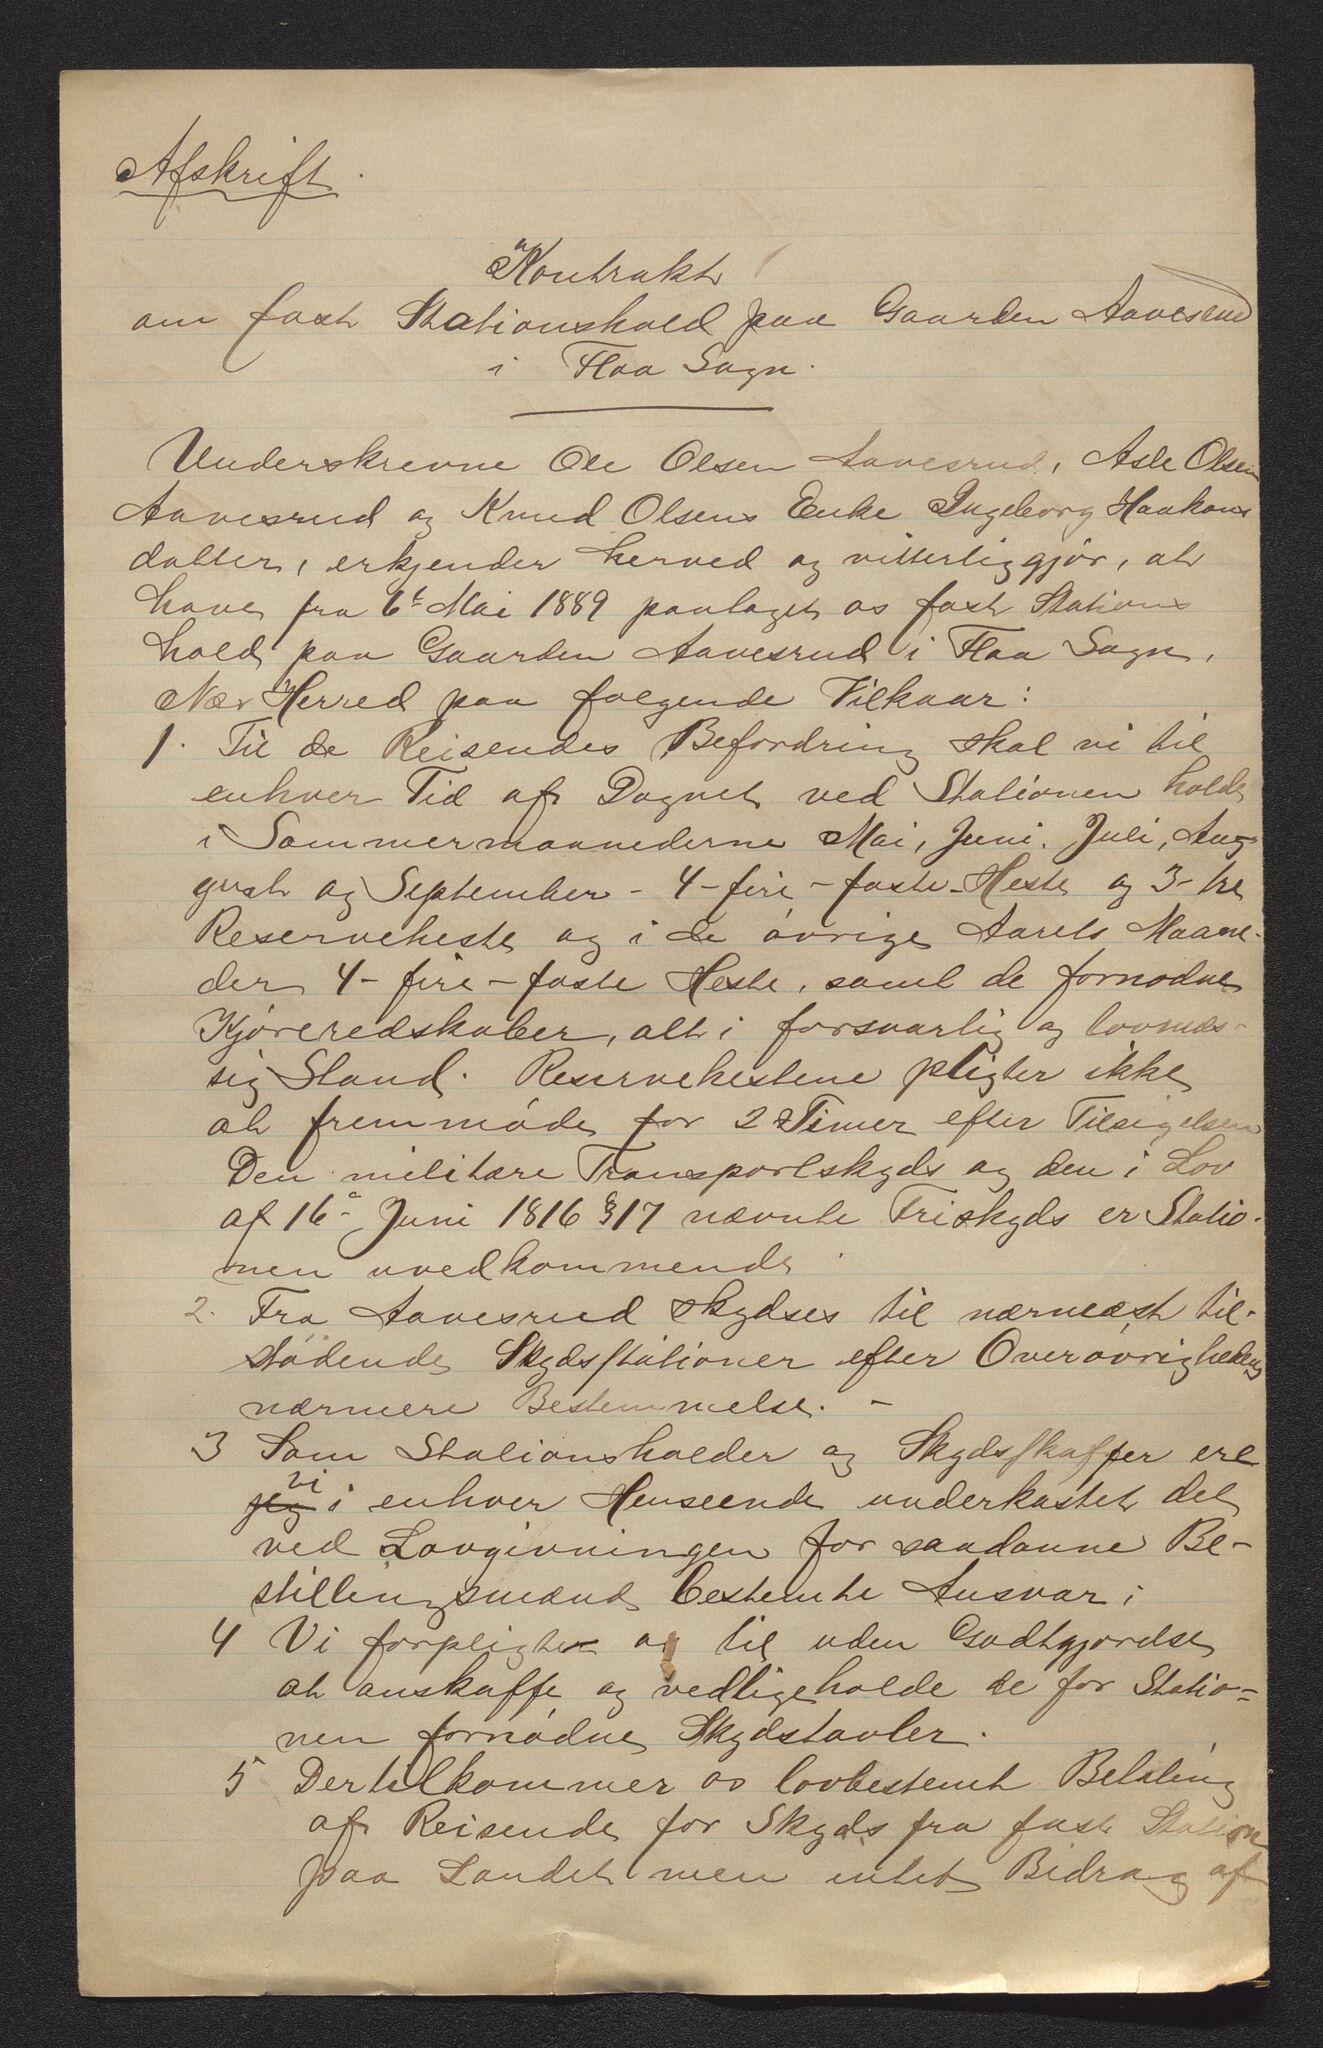 Afskrift.
Kontrakt
om fast Stationshold paa Gaarden Aavesrud
i Flaa Sogn.
Underskrevne Ole Olsen Aavesrud, Asle Olsen
Aavesrud og Knud Olsens Enke Ingeborg Haakons
datter, erkjender herved og vitterliggjør, at
have fra 6t Mai 1889 paataget os fast Stations
hold paa Gaarden Aavesrud i Flaa Sogn,
Næs Herred paa følgende Vilkaar:
1. Til de Reisendes Befordring skal vi til
enhver Tid af Døgnet ved Stationen holde
i Sommermaanederne Mai, Juni, Juli, Aug-
gust og September - 4-fire-faste Heste og 3-tre
Reserveheste og i de øvrige Aarets Maane-
der 4-fire-faste Heste, samt de fornødne
Kjøreredskaber, alt i forsvarlig og lovmæs-
sig Stand. Reservehestene pligter ikke
at fremmøde før 2 Timer efter Tilsigelsen
Den militære Transportskyds og den i Lov
af 16de Juni 1816 § 17 nævnte Friskyds er Statio-
nen uvedkommende
2. Fra Aavesrud skydses til nærmest til-
stødende Skydsstationer efter Overøvrighedens
nærmere Bestemmelse. -
3 Som Stationsholder og Skydsskaffer ere
jeg vi i enhver Henseende underkastet det
ved Lovgivningen for saadanne Be-
stillingsmænd bestemte Ansvar;
4 Vi forpligter os til uden Godtgjørelse
at anskaffe og vedligeholde de for Statio-
nen fornødne Skydstavler.
5 Dertilkommer os lovbestemt Betaling
af Reisende for Skyds fra fast Station
paa Landet men intet Bidrag af